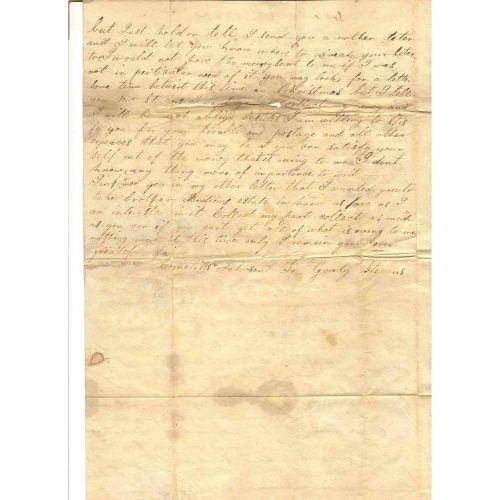 but Just hold on tell I send you a nother leter
and I will let you know where to direck your leter
to I would not have the money sent to me if I was
not in perticular need of it you may look for a letter
some time betwixt this time an Christmas but I tell
you Mr Stevens I my money and
I will be much oblige besides I am willing to
fy you for your trouble and postage and all other
expences that you may be at you can satisfy your
self out of the money that is owing to me I dont
know any thing more of importance to writ
I informed you in my other letter that I wanted you to
take estate in hand as fare as I
an interest in it Collect my part collect as much
as you can if you cant get all of what is owing to me
nothing more at this time only I remain your ever
greatest
Cornelius to Stevens